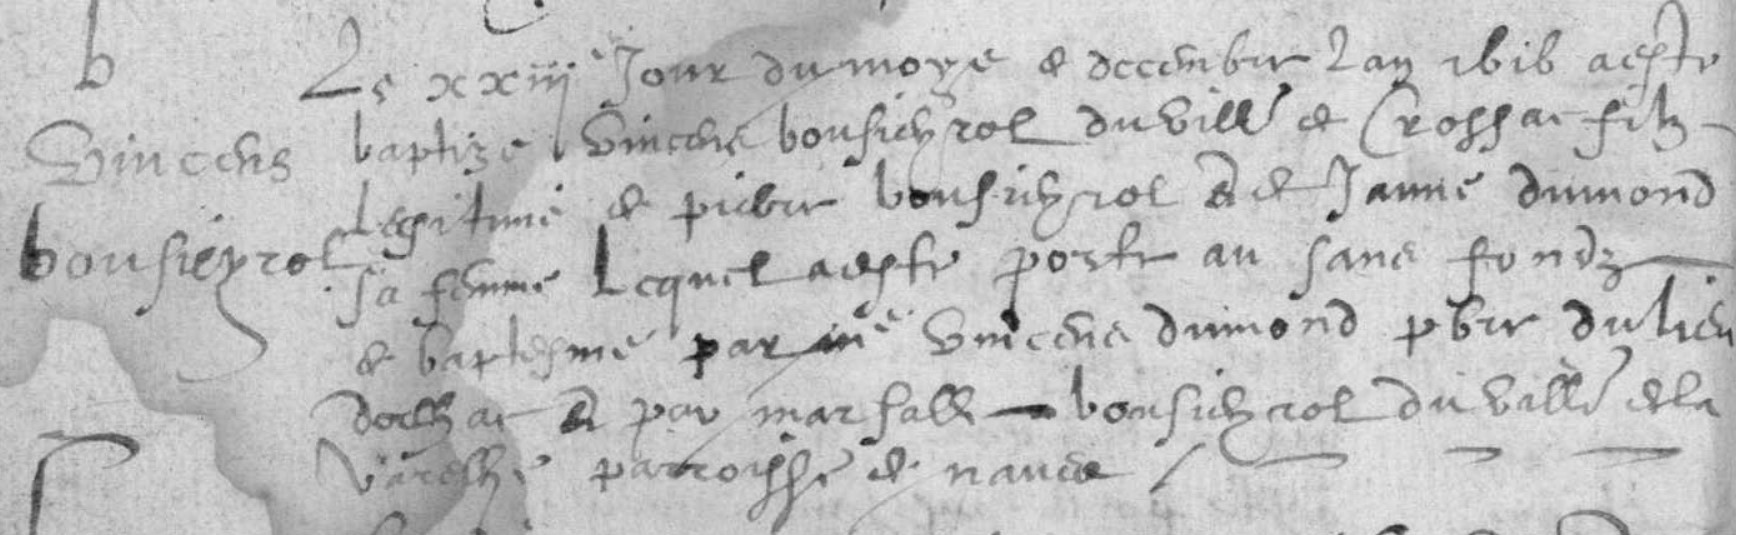 b
Vincens
bonsieyrol
Le xxiiij e Jour du moys de decembre Lan 1616 aeste
baptize Vincens bonsieyrol du villē de Crossac filz
Legitime de piebre bonsieyrol & de Janne dumond
sa femme Lequel aeste porte au sans fondz
de baptesme par me Vincens dumond pbre du lieu
& par marsall bonsieyrol du villē de la
parroisse de naves /